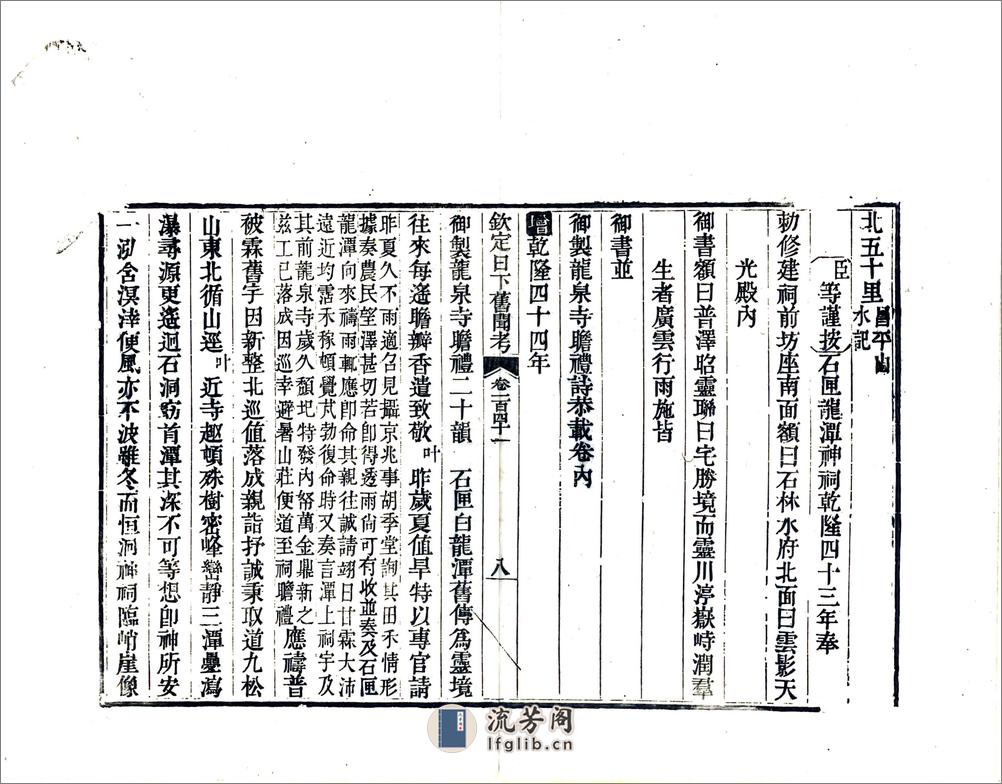 北五十里昌平山水記
臣等謹按石匣龍潭神祠乾隆四十三年奉
勅修建祠前坊座南面額曰石林水府北面曰雲影天
光殿內
御書額曰普澤昭靈聯曰宅勝境而靈川渟嶽峙潤羣
生者廣雲行雨施皆
御書並
御製龍泉寺瞻禮詩恭載卷內
增乾隆四十四年
欽定日下舊聞考 卷一百四十一 八
御製龍泉寺瞻禮二十韻 石匣白龍潭舊傳爲靈境
往來每遥瞻瓣香遣致敬叶昨歲夏值旱特以專官請
昨夏久不雨適召見攝京兆事胡季堂詢其田禾情形
據奏農民望澤甚切若卽得透雨尙可有收並奏及石匣
龍潭向來禱雨輒應卽命其親往誠請翊日甘霖大沛
遠近均霑禾稼頓覺芃勃復命時又奏言潭上祠宇及
其前龍泉寺歲久頽圯特發內帑萬金鼎新之
茲工已落成因巡幸避暑山莊便道至祠瞻禮應禱普
被霖舊宇因新整北巡值落成親詣抒誠秉取道九松
山東北循山逕叶近寺趣頓殊樹密峰巒靜三潭疊瀉
瀑尋源更遥迥石洞窈首潭其深不可等想卽神所安
一泓含溟涬便風亦不波雖冬而恒泂神祠臨峭崖像
流芳阁
lfglib.cn